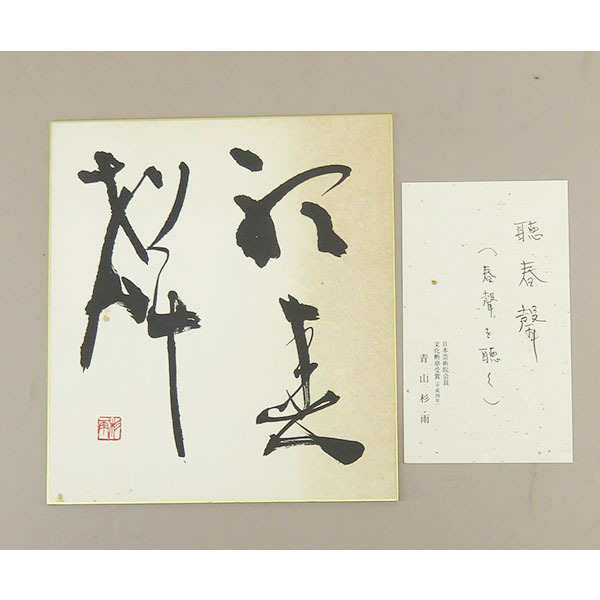 聽春
聲
杉雨
聽春聲
(春聲を聴く)
日本芸術院会員
文化勲章受賞(平成四年)
青山杉雨